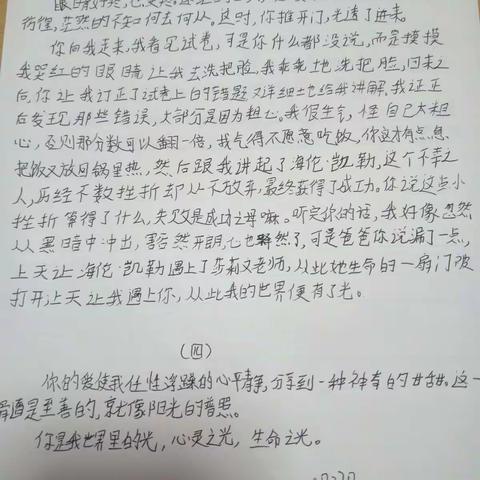 彷徨,茫然的不知何去何从。这时,你推开门,光透了进来。
你向我走来,我看见试卷,可是你什么都没说,而是摸摸
我哭红的眼睛让我去洗把脸,我乖乖地洗把脸,回来之
后,你让我订正了试卷上的错题又详细地给我讲解。我订正
后发现那些错误,大部分是因为粗心。我很生气,怪自己太粗
心,否则那分数可以翻一倍,我气得不愿意吃饭,你这才有点急
把饭又放回锅里热,然后跟我讲起了海伦·凯勒,这个不幸之
人,历经不数挫折却从不放弃,最终获得了成功。你说这点小
挫折算得了什么,失败是成功之母嘛。听完你的话,我好像忽然
从黑暗中冲出,豁然开朗,心也释然了,可是爸爸你说漏了一点,
上天让海伦·凯勒遇上了莎莉文老师,从此她生命的一扇门被
打开,上天让我遇上你,从此我的世界便有了光。
(四)
你的爱使我任性浮躁的心平静,分享到一种神奇的甘甜。这一
味道是至善的,就像阳光的普照。
你是我世界里的光,心灵之光,生命之光。